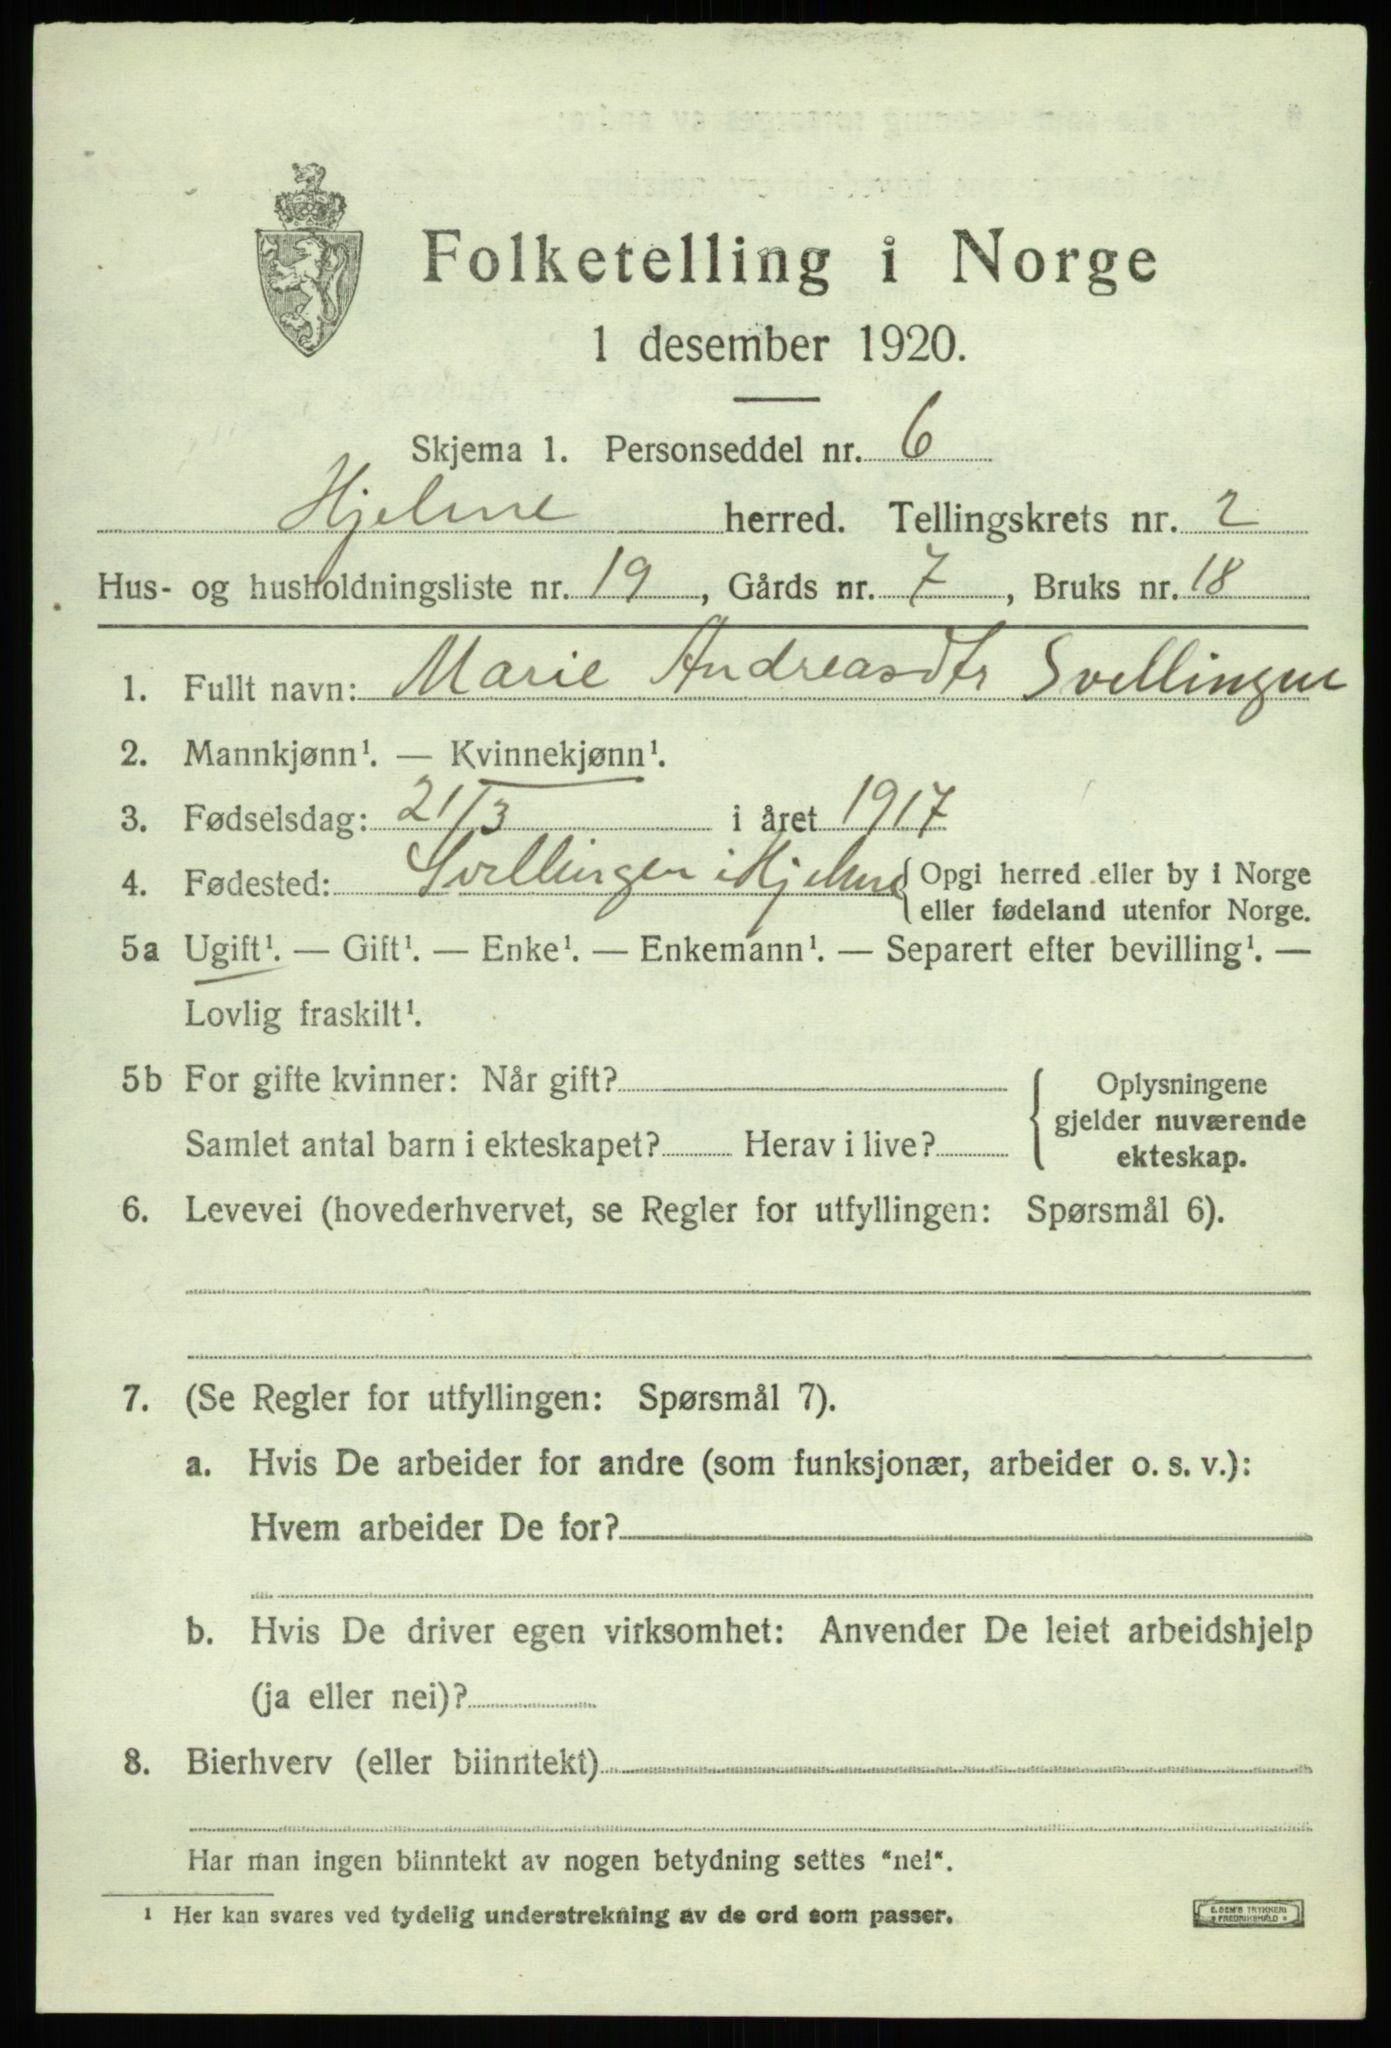 Folketelling i Norge
1 desember 1920.
Skjema 1. Personseddel nr. 6
Hjelme herred. Tellingskrets nr. 2
Hus- og husholdningsliste nr. 19, Gårds nr. 7, Bruks nr. 18
1. Fullt navn: Marie Andreasdtr Svellingen
2. Mannkjønn¹. — Kvinnekjønn¹.
3. Fødselsdag: 21/3 i året 1917
4. Fødested: Svellingen i Hjelme { Opgi herred eller by i Norge
eller fødeland utenfor Norge.
5a Ugift¹. — Gift¹. — Enke¹. — Enkemann¹. — Separert efter bevilling¹. —
Lovlig fraskilt¹.
5b For gifte kvinner: Når gift? { Oplysningene
gjelder nuværende
Samlet antal barn i ekteskapet? Herav i live? ekteskap.
6. Levevei (hovederhvervet, se Regler for utfyllingen: Spørsmål 6).
7. (Se Regler for utfyllingen: Spørsmål 7).
a. Hvis De arbeider for andre (som funksjonær, arbeider o. s. v.):
Hvem arbeider De for?
b. Hvis De driver egen virksomhet: Anvender De leiet arbeidshjelp
(ja eller nei)?
8. Bierhverv (eller biinntekt)
Har man ingen biinntekt av nogen betydning settes "nei".
¹ Her kan svares ved tydelig understrekning av de ord som passer.
E. SEM'S TRYKKERI
FREDRIKSHALD